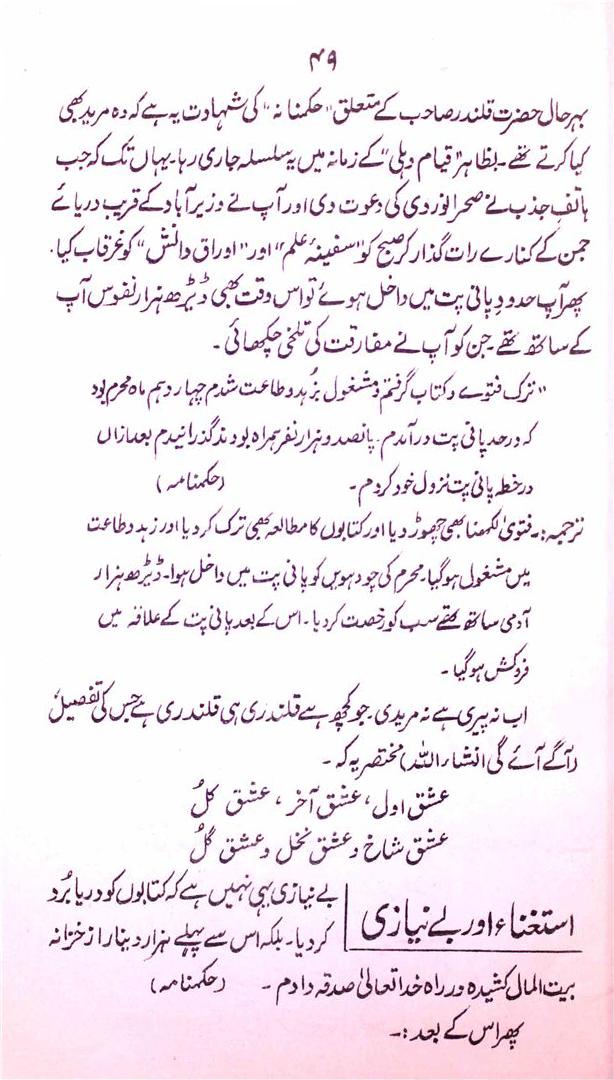 ۴۹
بہر حال حضرت قلندر صاحب کے متعلق "حکمنامہ" کی شہادت یہ ہے کہ وہ مرید بھی
کیا کرتے تھے۔ بظاہر "قیام دہلی" کے زمانہ میں یہ سلسلہ جاری رہا۔ یہاں تک کہ جب
ہاتفِ جذب نے صحرا نوردی کی دعوت دی اور آپ نے وزیر آباد کے قریب دریائے
جمن کے کنارے رات گذار کر صبح کو "سفینۂ علم" اور "اوراق دانش" کو غرقاب کیا۔
پھر آپ حدودِ پانی پت میں داخل ہوئے تو اس وقت بھی ڈیڑھ ہزار نفوس آپ
کے ساتھ تھے۔ جن کو آپ نے مفارقت کی تلخی چکھائی۔
"ترک فتوے و کتاب گرفتم و مشغول بزُہد و طاعت شدم چہاردہم ماہ محرم بود
کہ در حد پانی پت در آمدم۔ پانصد و ہزار نفر ہمراہ بودند گذرانیدم بعد ازاں
در خطہ پانی پت نزول خود کردم۔ (حکمنامہ)
ترجمہ:۔ فتویٰ لکھنا بھی چھوڑ دیا اور کتابوں کا مطالعہ بھی ترک کر دیا اور زہد و طاعت
میں مشغول ہو گیا۔ محرم کی چودہویں کو پانی پت میں داخل ہوا۔ ڈیڑھ ہزار
آدمی ساتھ تھے سب کو رخصت کر دیا۔ اس کے بعد پانی پت کے علاقہ میں
فروکش ہو گیا۔
اب نہ پیری ہے نہ مریدی۔ جو کچھ ہے قلندری ہی قلندری ہے جس کی تفصیل
(آگے آئے گی انشاء اللہ) مختصر یہ کہ۔
عشق اول، عشق آخر، عشق کلُ
عشق شاخ و عشق نخل و عشق گلُ
استغناء اور بے نیازی
بے نیازی یہی نہیں ہے کہ کتابوں کو دریا بُرد
کر دیا۔ بلکہ اس سے پہلے ہزار دینار از خزانہ
بیت المال کشیدہ در راہ خدا تعالیٰ صدقہ دادم۔ (حکمنامہ)
پھر اس کے بعد:۔